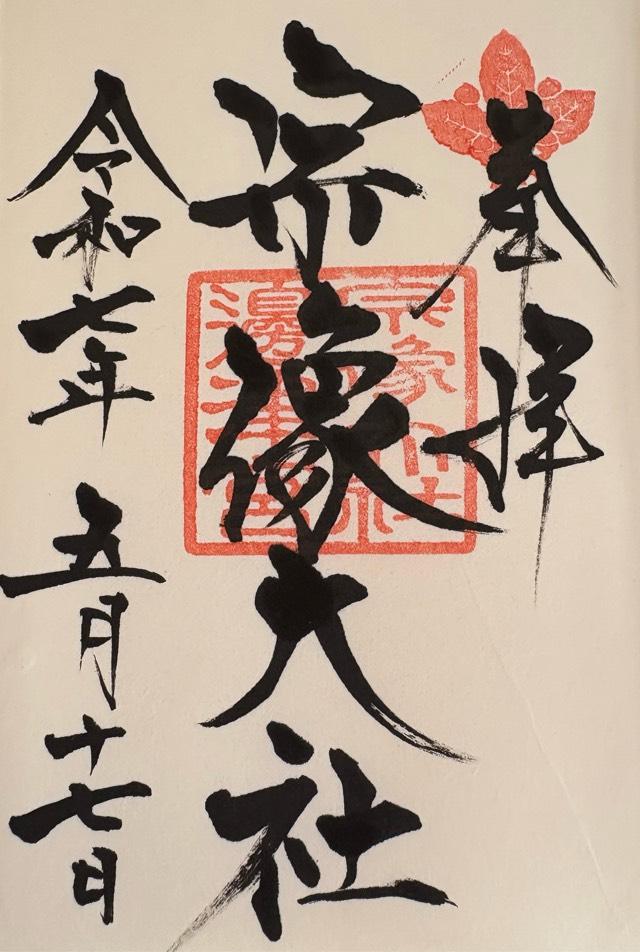 奉拝
宗像大社
宗像大社
邊津宮
令和七年五月十七日